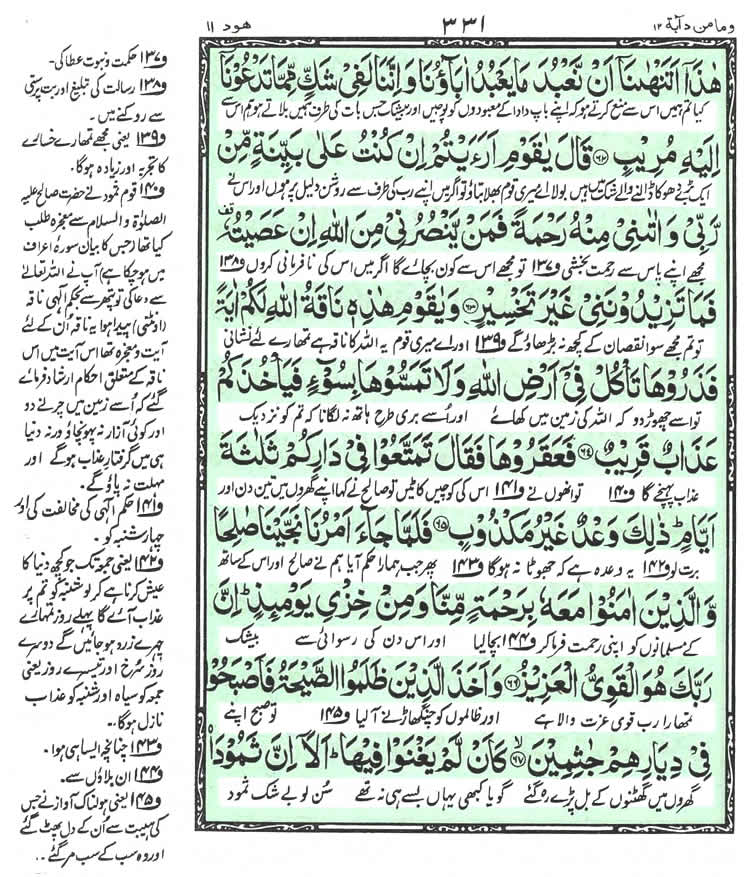 وما من دآبة ۱۲
۳۳۱
هود ۱۱
هٰذَآ اَتَنْهٰىنَآ اَنْ نَّعْبُدَ مَا يَعْبُدُ اٰبَآؤُنَا وَاِنَّنَا لَفِيْ شَكٍّ مِّمَّا تَدْعُوْنَآ
کیا تم ہمیں اس سے منع کرتے ہو کہ اپنے باپ دادا کے معبودوں کو پوجیں اور بیشک جس بات کی طرف ہمیں بلاتے ہو ہم اس سے
اِلَيْهِ مُرِيْبٍ ۶۲ قَالَ يٰقَوْمِ اَرَءَيْتُمْ اِنْ كُنْتُ عَلٰى بَيِّنَةٍ مِّنْ
ایک بڑے دھوکا ڈالنے والے شک میں ہیں بولا اے میری قوم بھلا بتاؤ تو اگر میں اپنے رب کی طرف سے روشن دلیل پر ہوں اور اس نے
رَّبِّيْ وَاٰتٰىنِيْ مِنْهُ رَحْمَةً فَمَنْ يَّنْصُرُنِيْ مِنَ اللّٰهِ اِنْ عَصَيْتُهٗ
مجھے اپنے پاس سے رحمت بخشی ف۱۳۷ تو مجھے اس سے کون بچائے گا اگر میں اس کی نافرمانی کروں ف۱۳۸
فَمَا تَزِيْدُوْنَنِيْ غَيْرَ تَخْسِيْرٍ ۶۳ وَيٰقَوْمِ هٰذِهٖ نَاقَةُ اللّٰهِ لَكُمْ اٰيَةً
تو تم مجھے سوا نقصان کے کچھ نہ بڑھاؤ گے ف۱۳۹ اور اے میری قوم یہ اللہ کا ناقہ ہے تمھارے لئے نشانی
فَذَرُوْهَا تَاْكُلْ فِيْٓ اَرْضِ اللّٰهِ وَلَا تَمَسُّوْهَا بِسُوْٓءٍ فَيَاْخُذَكُمْ
تو اسے چھوڑ دو کہ اللہ کی زمین میں کھائے اور اُسے بری طرح ہاتھ نہ لگانا کہ تم کو نزدیک
عَذَابٌ قَرِيْبٌ ۶۴ فَعَقَرُوْهَا فَقَالَ تَمَتَّعُوْا فِيْ دَارِكُمْ ثَلٰثَةَ
عذاب پہنچے گا ف۱۴۰ تو انھوں نے ف۱۴۱ اس کی کوچیں کاٹیں تو صالح نے کہا اپنے گھروں میں تین دن اور
اَيَّامٍ ذٰلِكَ وَعْدٌ غَيْرُ مَكْذُوْبٍ ۶۵ فَلَمَّا جَآءَ اَمْرُنَا نَجَّيْنَا صٰلِحًا
برت لو ف۱۴۲ یہ وعدہ ہے کہ جھوٹا نہ ہوگا ف۱۴۳ پھر جب ہمارا حکم آیا ہم نے صالح اور اس کے ساتھ
وَّالَّذِيْنَ اٰمَنُوْا مَعَهٗ بِرَحْمَةٍ مِّنَّا وَمِنْ خِزْيِ يَوْمِئِذٍ اِنَّ
کے مسلمانوں کو اپنی رحمت فرما کر ف۱۴۴ بچا لیا اور اس دن کی رسوائی سے بیشک
رَبَّكَ هُوَ الْقَوِيُّ الْعَزِيْزُ ۶۶ وَاَخَذَ الَّذِيْنَ ظَلَمُوا الصَّيْحَةُ فَاَصْبَحُوْا
تمھارا رب قوی عزت والا ہے اور ظالموں کو چنگھاڑ نے آ لیا ف۱۴۵ تو صبح اپنے
فِيْ دِيَارِهِمْ جٰثِمِيْنَ ۶۷ كَاَنْ لَّمْ يَغْنَوْا فِيْهَا اَلَآ اِنَّ ثَمُوْدَا۟
گھروں میں گھٹنوں کے بل پڑے رہ گئے گویا کبھی یہاں بسے ہی نہ تھے سُن لو بے شک ثمود
ف۱۳۷ حکمت و نبوت عطا کی۔
ف۱۳۸ رسالت کی تبلیغ اور بت پرستی
سے روکنے میں۔
ف۱۳۹ یعنی مجھے تمھارے خسارے
کا تجربہ اور زیادہ ہوگا۔
ف۱۴۰ قوم ثمود نے حضرت صالح علیہ
الصلوٰۃ و السلام سے معجزہ طلب
کیا تھا (جس کا بیان سورۂ اعراف
میں ہوچکا ہے) آپ نے اللہ تعالےٰ
سے دعا کی تو پتھر سے بحکم الٰہی ناقہ
(اونٹنی) پیدا ہوا یہ ناقہ اُن کے لئے
آیت و معجزہ تھا اس آیت میں اس
ناقہ کے متعلق احکام ارشاد فرمائے
گئے کہ اُسے زمین میں چرنے دو
اور کوئی آزار نہ پہونچاؤ ورنہ دنیا
ہی میں گرفتارِ عذاب ہوگے اور
مہلت نہ پاؤ گے۔
ف۱۴۱ حکم الٰہی کی مخالفت کی اور
چہار شنبہ کو۔
ف۱۴۲ یعنی جمعہ تک جو کچھ دنیا کا
عیش کرنا ہے کرلو شنبہ کو تم پر
عذاب آئے گا پہلے روز تمہارے
چہرے زرد ہوجائیں گے دوسرے
روز سُرخ اور تیسرے روز یعنی
جمعہ کو سیاہ اور شنبہ کو عذاب
نازل ہوگا۔
ف۱۴۳ چنانچہ ایسا ہی ہوا۔
ف۱۴۴ ان بلاؤں سے۔
ف۱۴۵ یعنی ہولناک آواز نے جس
کی ہیبت سے اُن کے دل پھٹ گئے
اور وہ سب کے سب مر گئے۔